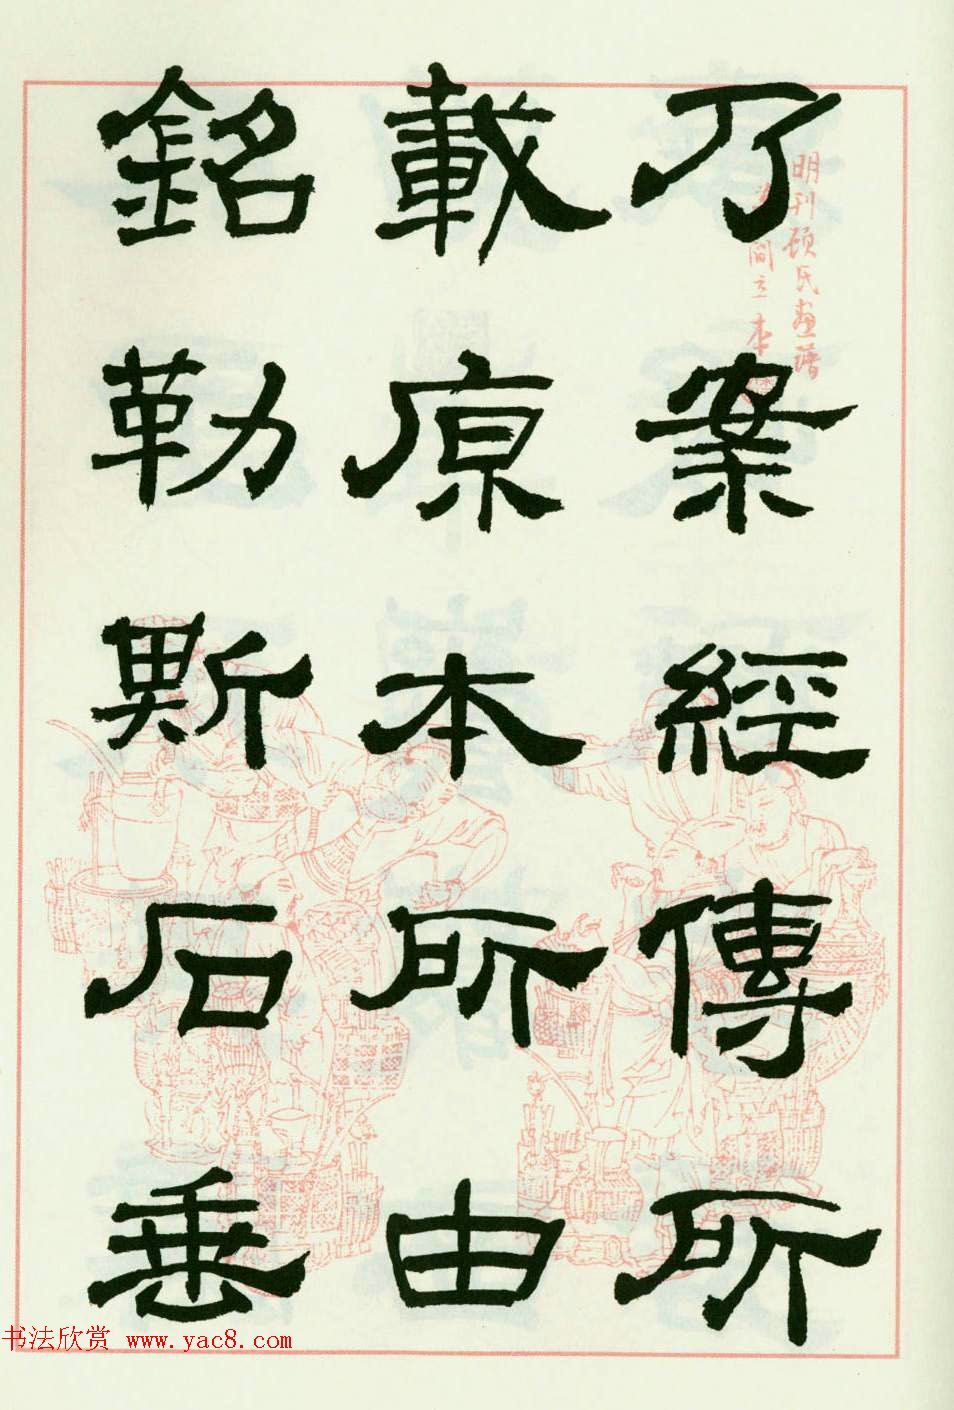 乃案經傳所
載原本所由
銘勒斯石垂
明刊顧氏畫譜
閻立本
书法欣赏 www.yac8.com